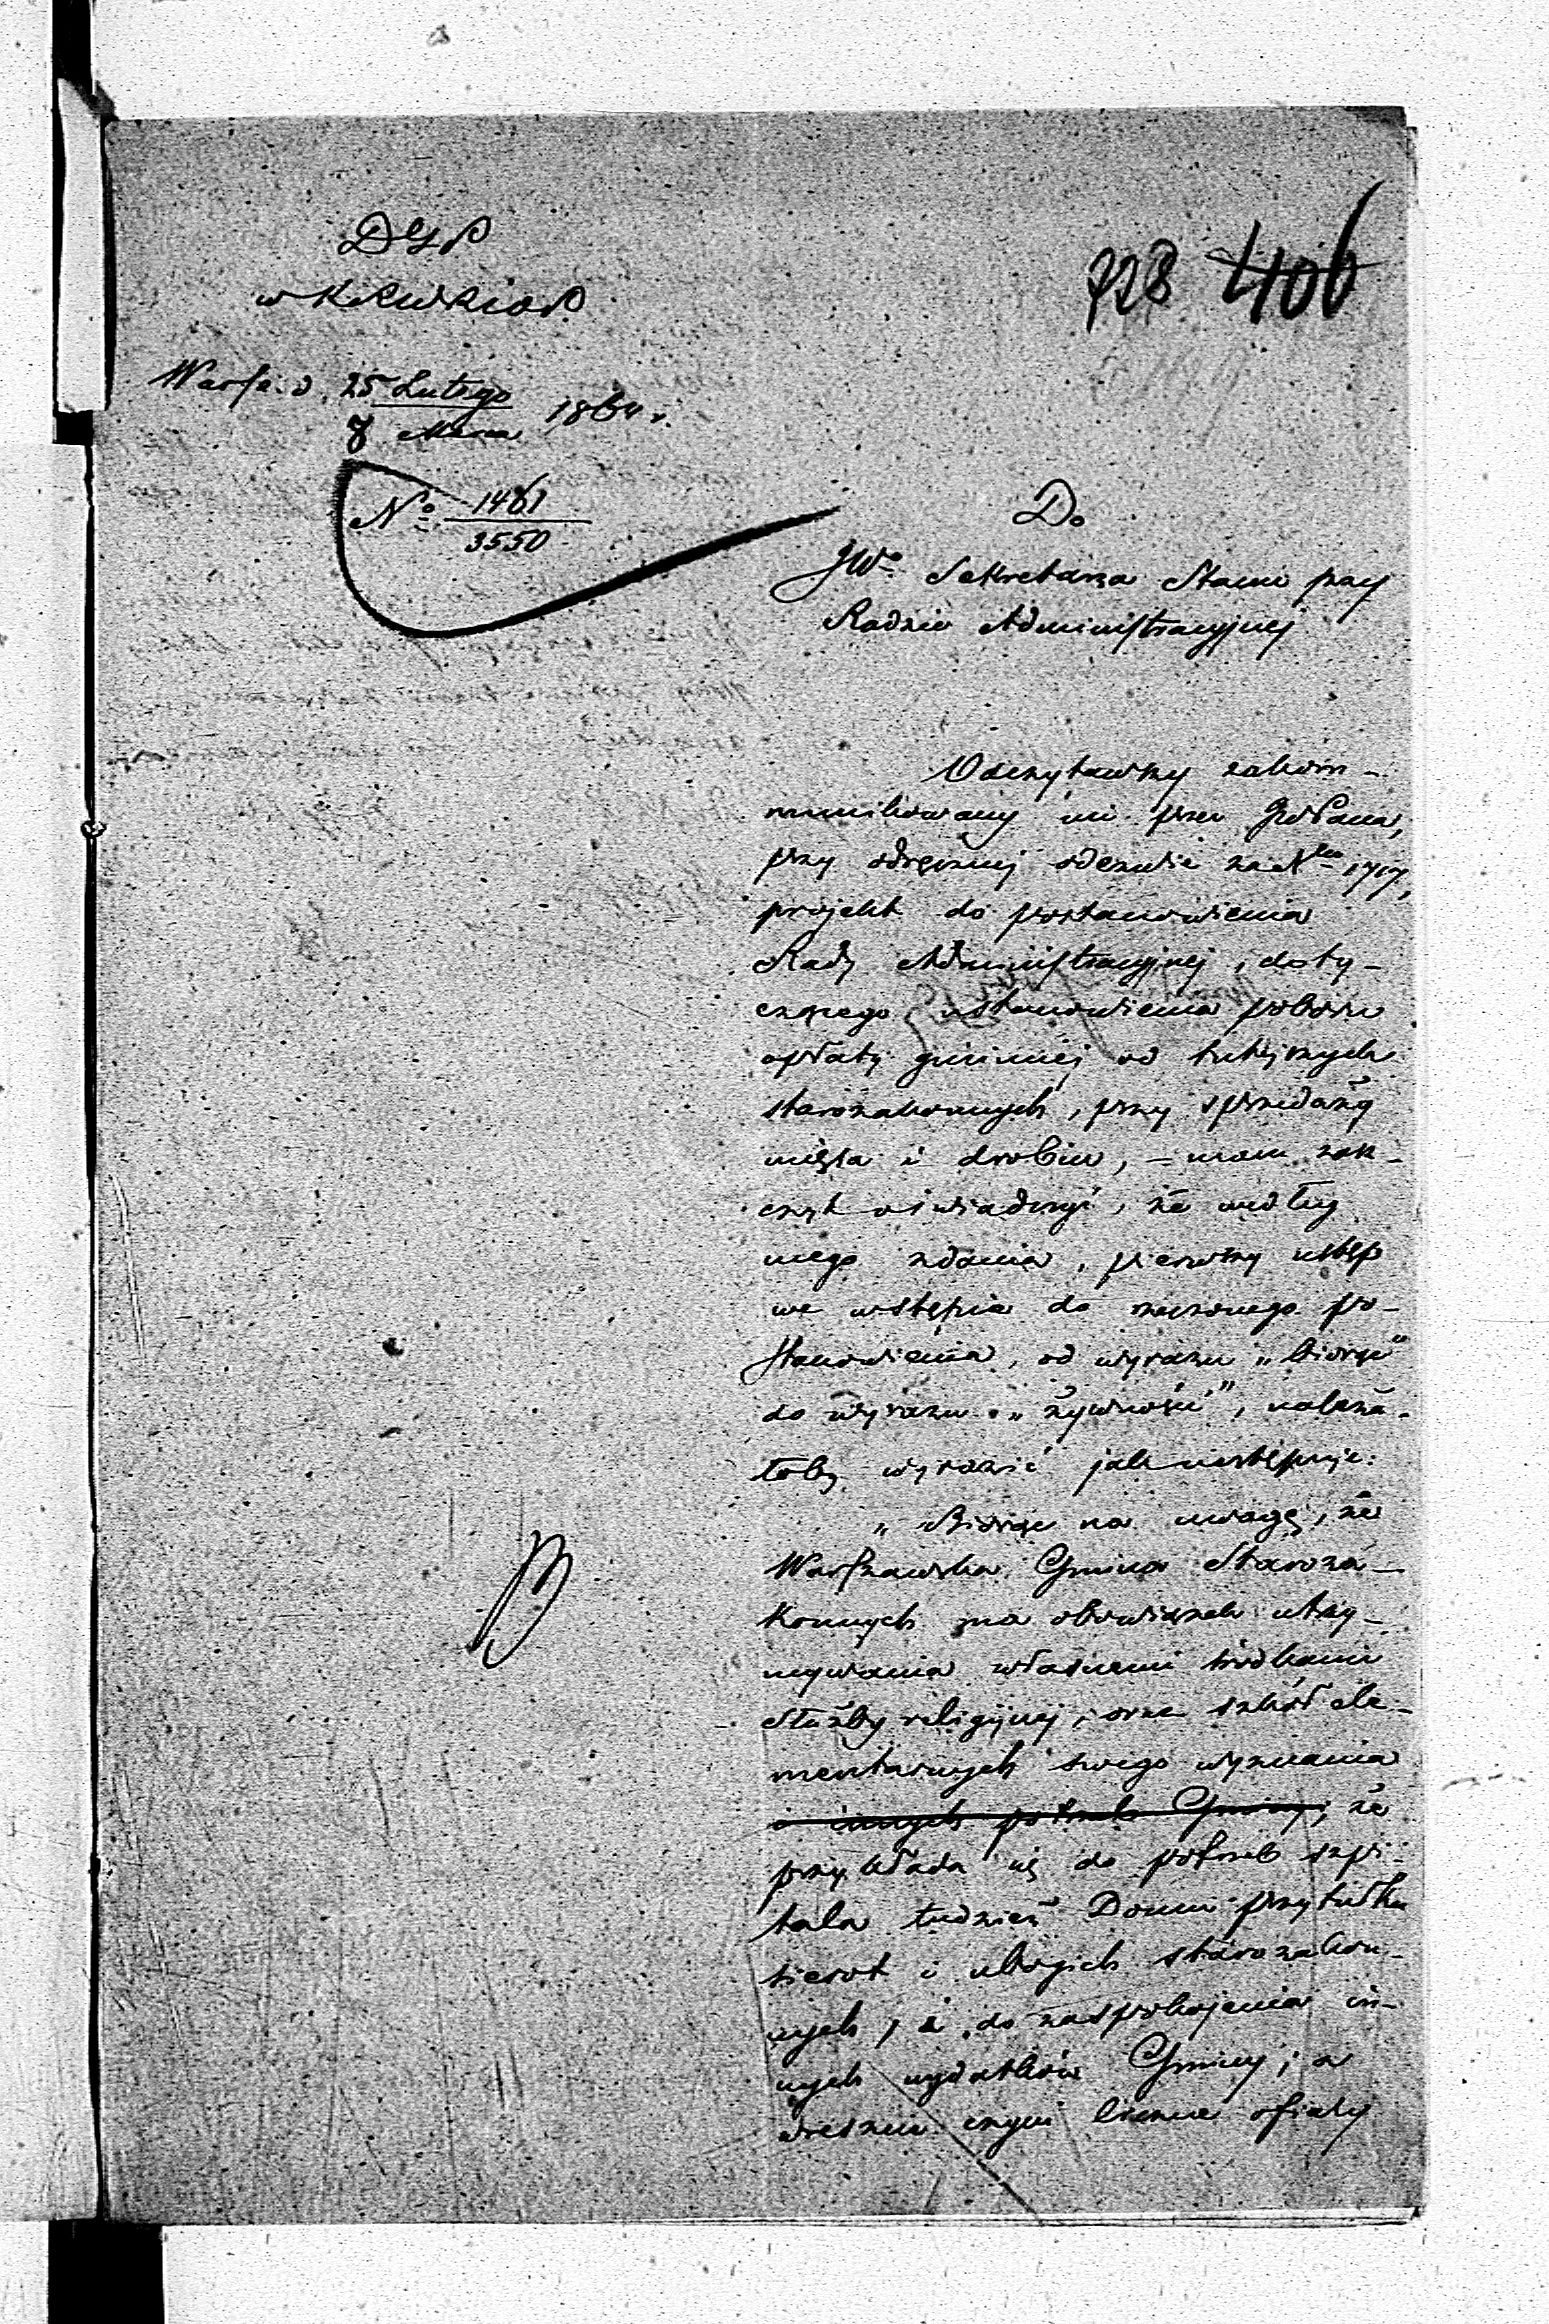 DGSP
w KRSWRiOP
728 406
Warsz. d. 25 Lutego
8 Marca 1864 r.
No 1461
3550
Do
JWo Sekretarza Stanu przy
Radzie Administracyjnej
Odczytawszy zakom-
munikowany mi przez JWPana,
przy odręcznej odezwie za Nrem 1717,
projekt do postanowienia
Rady Administracyjnej, doty-
czącego ustanowienia poboru
opłaty gminnej od tutejszych
starozakonnych, przy sprzedaży
mięsa i drobiu, – mam zasz-
czyt oświadczyć, że według
mego zdania, pierwszy ustęp
we wstępie do rzeczonego po-
stanowienia, od wyrazu „biorąc"
do wyrazu „żywność", należa-
łoby wyrazić jak następuje:
„Biorąc na uwagę, że
Warszawska Gmina Staroza-
konnych ma obowiązek utrzy-
mywania własnemi środkami
służby religijnej, oraz szkół ele-
mentarnych swego wyznania
i innych potrzeb Gminy; że
przykłada się do potrzeb szpi-
tala tudzież Domu przytułku
sierot i ubogich starozakon-
nych, i do zaspokojenia in-
nych wydatków Gminy; a
wreszcie czyni liczne ofiary